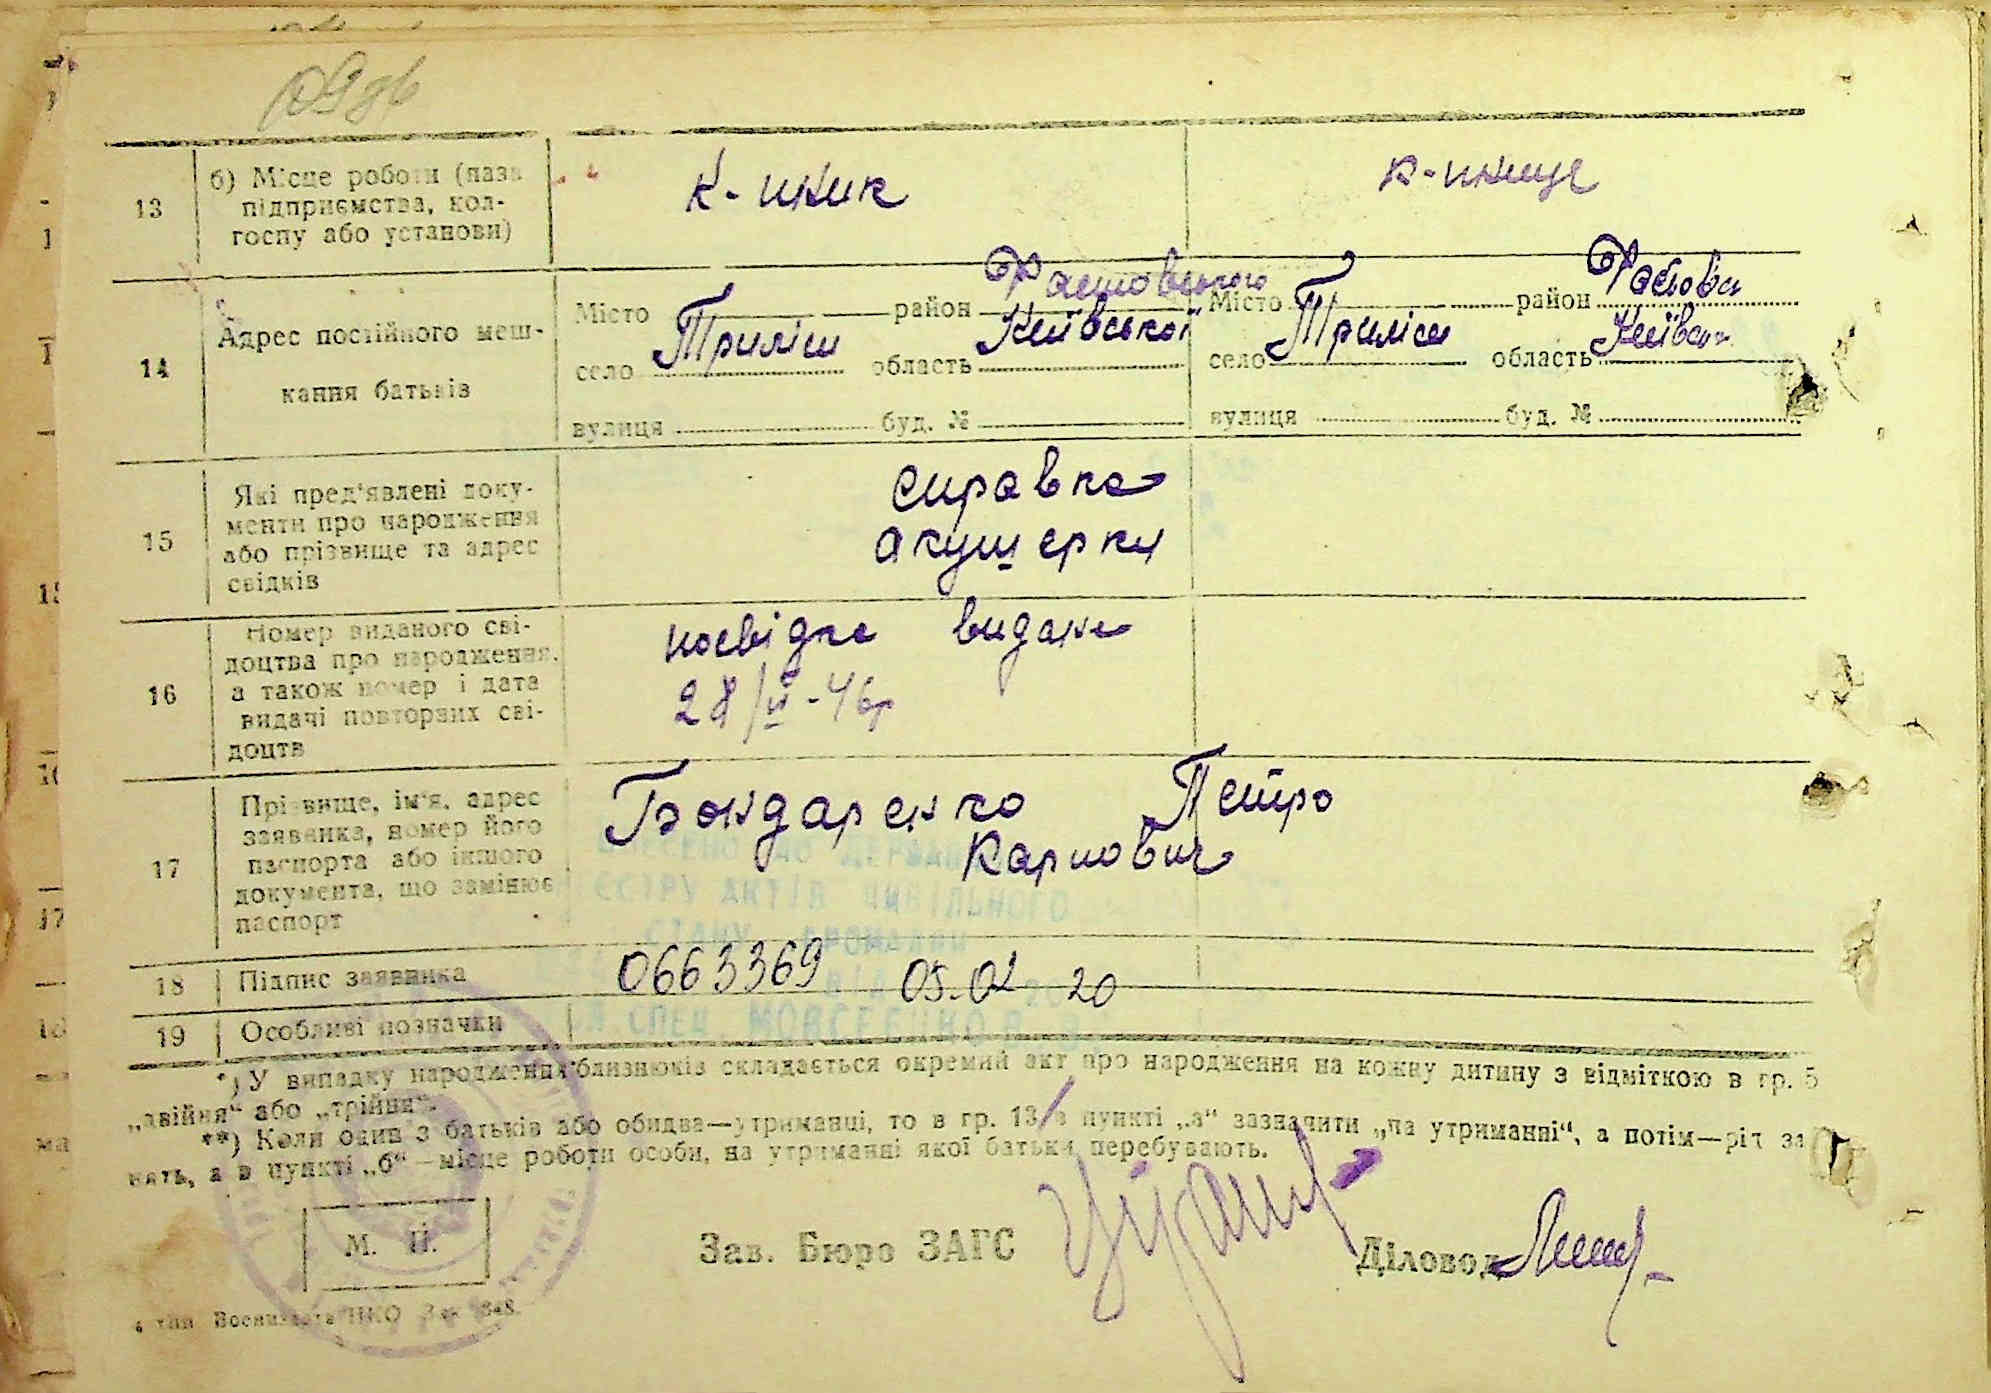 13
б) Місце роботи (назв
підприємства, кол-
госпу або установи)
К-иник
к-иниця
14
Адрес постійного меш-
кання батьків
Місто район Фастовського
село Триліси область Київської
вулиця буд. №
Місто район Фастовск
село Триліси область Київськ
вулиця буд. №
15
Які пред'явлені доку-
менти про народження
або прізвище та адрес
свідків
справка
акушерки
16
Номер виданого сві-
доцтва про народження,
а також номер і дата
видачі повторних сві-
доцтв
посвідка видана
28/ІІ-46р
17
Прізвище, ім'я, адрес
заявника, номер його
паспорта або іншого
документа, що замінює
паспорт
Бондаренко Петро
Карпович
ВНЕСЕНО ДО ДЕРЖАВНОГО
РЕЄСТРУ АКТІВ ЦИВІЛЬНОГО
СТАНУ ГРОМАДЯН
18 Підпис заявника
0663369 05.02 20
19 Особливі позначки
СПЕЦ МОВСЕЄНКО
*) У випадку народження близнюків складається окремий акт про народження на кожну дитину з відміткою в гр. 5
„двійня“ або „трійня“.
**) Коли один з батьків або обидва—утриманці, то в гр. 13 в пункті „а“ зазначити „на утриманні“, а потім—рід за
нять, а в пункті „б“—місце роботи особи, на утриманні якої батьки перебувають.
М. П.
Зав. Бюро ЗАГС
Діловод